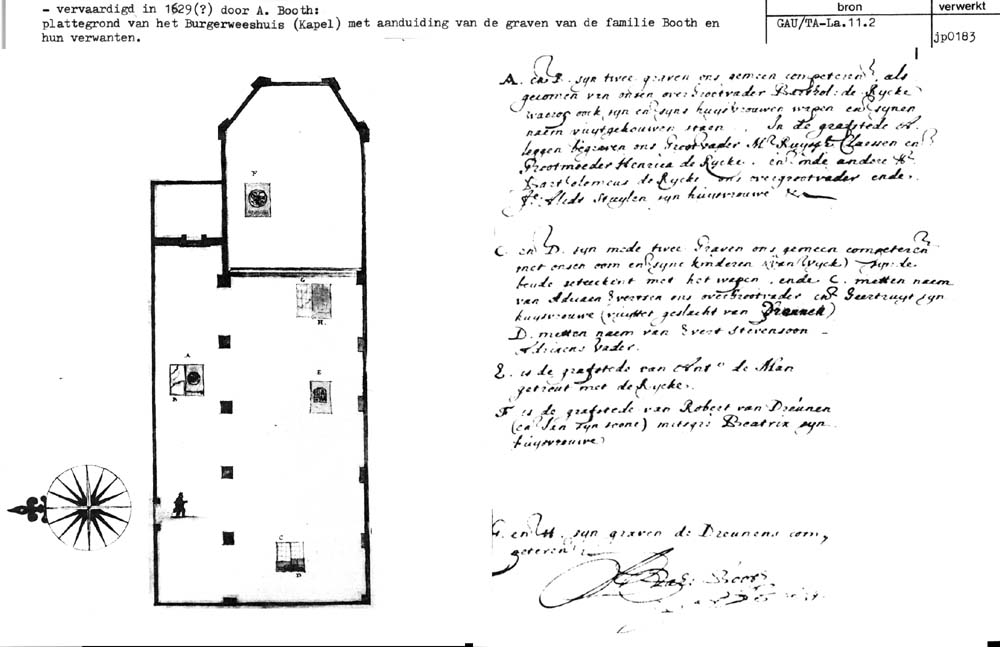 - vervaardigd in 1629(?) door A. Booth:
plattegrond van het Burgerweeshuis (Kapel) met aanduiding van de graven van de familie Booth en
hun verwanten.
bron
verwerkt
GAU/TA-La.11.2
jp0183
A. en B. syn twee graven ons gemeen competeren, als
gecomen van onsen overgrootvader Barthol: de Rycke
waerop oock syn en syns huysvrouwen wapen en synen
naem uuytgehouwen staen. In de grafstede A.
leggen begraven ons Grootvader Mr Ruysch Claessen en
Grootmoeder Henrica de Rycke. en onde andere
Bartholomeus de Rycke ons overgrootvader ende
Aleids Stuylen syn huysvrouwe
C. en D. syn mede twee Graven ons gemeen competeren
met onsen oom en syne kinderen (van Wyck) op de
beude geteekent met het wapen, ende C. metten naem
van Adriaen Evertsen ons overgrootvader en Geertruyt syn
huysvrouwe (uuyttet geslacht van Dreunen)
D. metten naem van Evert Stevensoon
Adriaens Vader.
E. is de grafstede van Anto de Man
getrout met de Rycke.
F is de grafstede van Robert van Dreunen
(en Jan syn soone) mitsgrs Beatrix syn
huysvrouwe
G. en H. syn graven de Dreunens com,
peteren.
F
G
H.
A
B
E
C
D